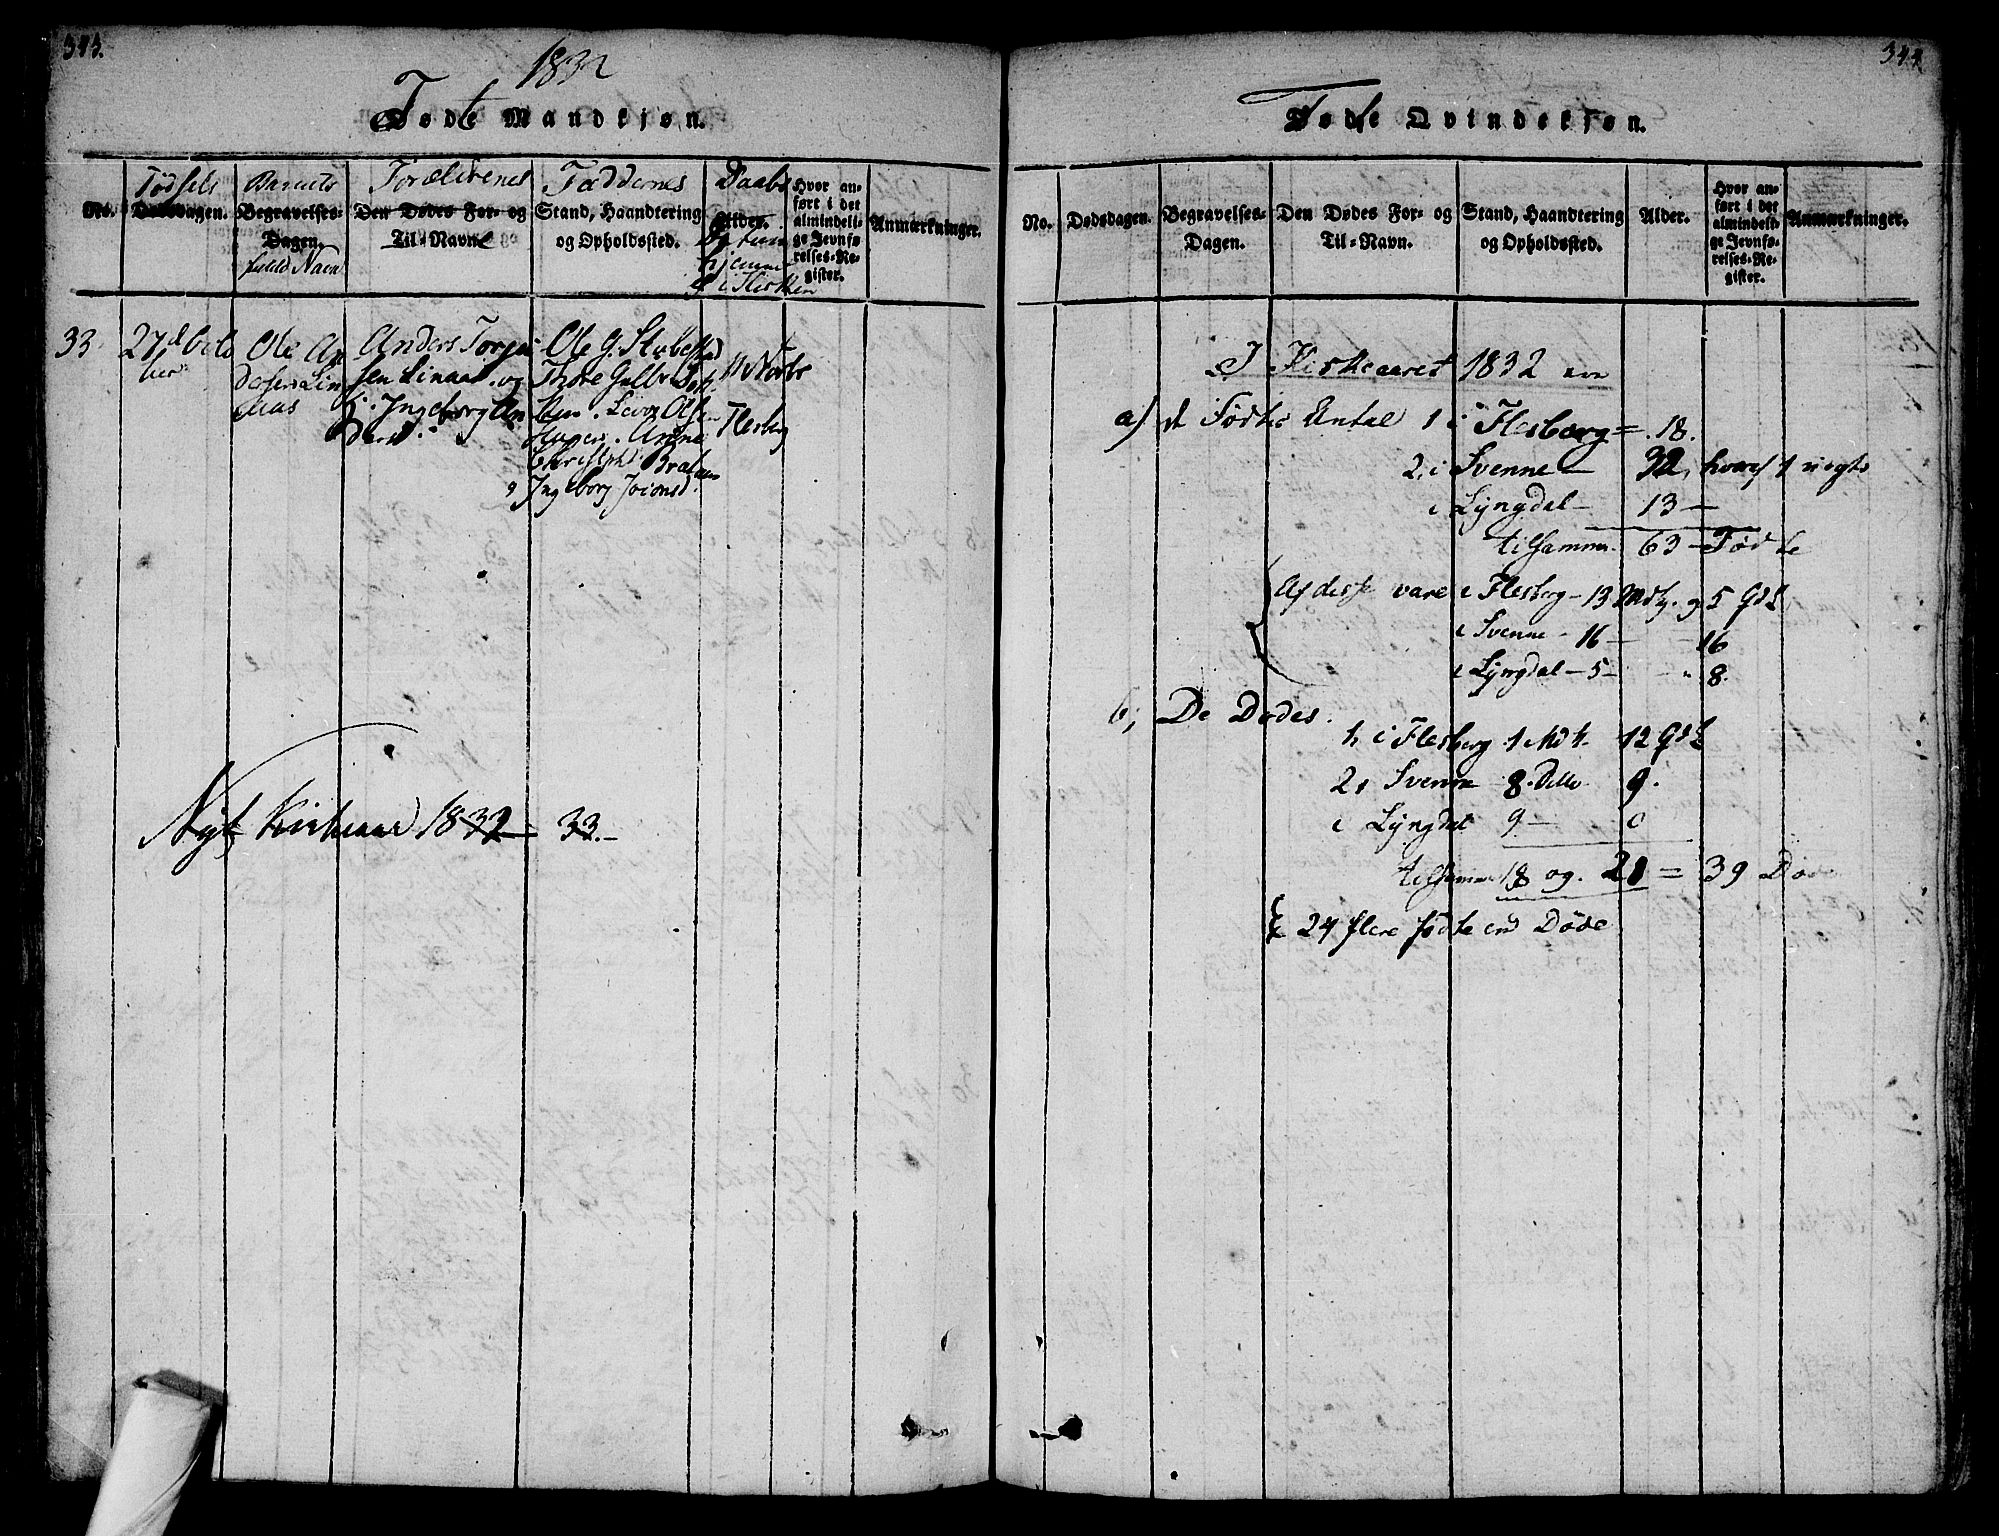 343.
1832
Fødte Mandkjøn.
No.
Fødsels
Dødsdagen.
Barnets
Begravelses-
Dagen.
fulde Navn
Forældrenes
Den Dødes For- og
Til-Navn
Faddernes
Stand, Haandtering
og Opholdssted.
Daabs
Alder.
hjemme
i Kirken
Hvor an-
ført i det
almindeli-
ge Jevnfø-
relses-Re-
gister.
Anmærkninger.
33
27d Octo
ber
Ole An
dersen Lin
aas
Anders Torge
sen Linaas og
K. Ingeborg An
dersd.
Ole G. Stubes
Thore Gulbr
Olsen
Anne
Christophd. Braten
og Ingeborg
11 Novbr
Flesberg
Nyt Kirkeaar 1832 = 33.-
344
Fødte Qvindekjøn.
No.
Dødsdagen.
Begravelses-
Dagen.
Den Dødes For- og
Til-Navn.
Stand, Haandtering
og Opholdssted.
Alder.
Hvor an-
ført i det
almindeli-
ge Jevnfø-
relses-Re-
gister.
Anmærkninger.
I Kirkeaaret 1832 ere
a) d Fødtes Antal 1 i Flesberg = 18.
2, i Svenne - 32, hvoraf 1 uægte
i Lyngdal - 13 -
tilsammen 63 - Fødte
Af disse vare i Flesberg - 13 Mdk. og 5 Qdk
i Svenne - 16 - 16
i Lyngdal - 5 - " 8.
b, De Dødes.
1, i Flesberg 1 Mdk. 12 Qdk
2, Svenne 8. Ditto 9.
i Lyngdal 9 - 0
tilsammen 18 og 21 = 39 Døde
24 flere fødte end Døde